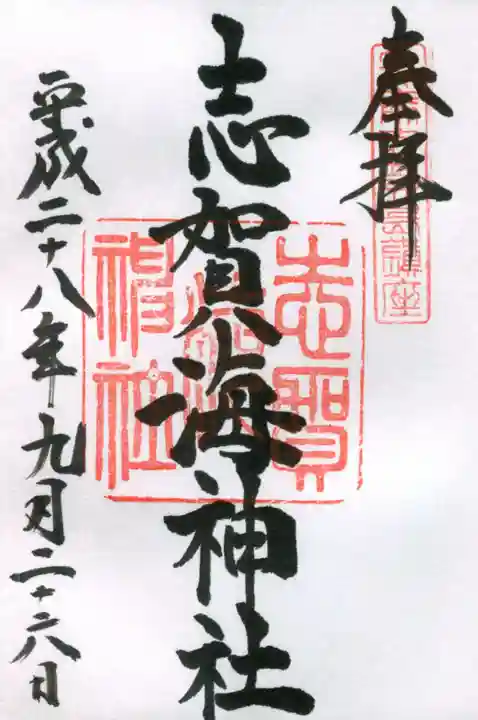 奉拝
志賀海神社
平成二十八年九月二十六日
志賀海神社